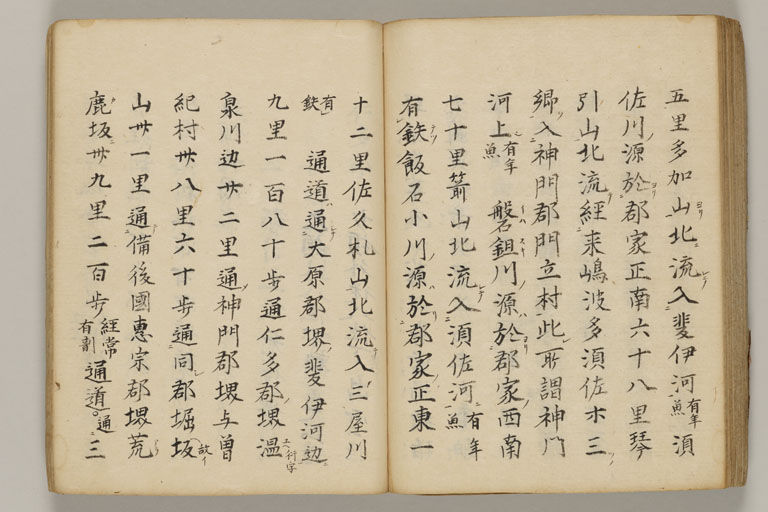 五里多加山北流入斐伊河有年魚須
佐川源於郡家正南六十八里琴
引山北流経来嶋波多須佐木三
郷入神門郡門立村此所謂神門
河上有年魚 磐鉏川源於郡家西南
七十里箭山北流入須佐河有年魚
有鉄飯石小川源於郡家正東一
十二里佐久札山北流入三屋川
有鉄 通道通大原郡堺斐伊河边
九里一百八十歩通仁多郡堺温
泉川辺廿二里通神門郡堺与曽
紀村廿八里六十歩通同郡堀坂
山卅一里通備後國恵宗郡堺荒
鹿坂卅九里二百歩経常有剗通道通三